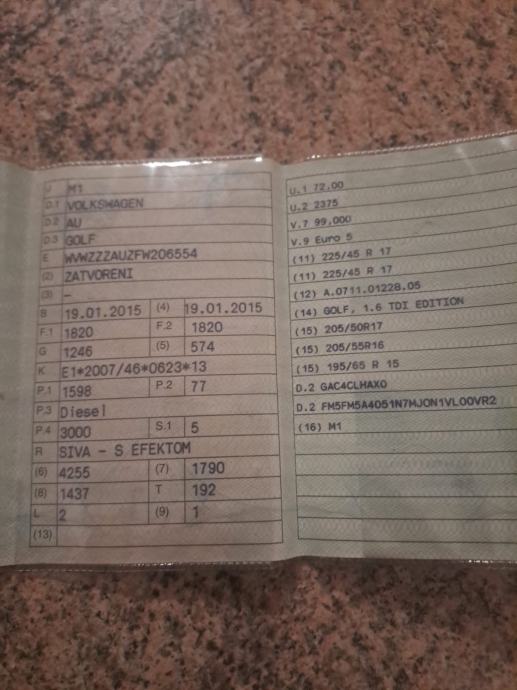 J M1
D.1 VOLKSWAGEN
D.2 AU
D.3 GOLF
E WVWZZZAUZFW206554
(2) ZATVORENI
(3) -
B 19.01.2015 (4) 19.01.2015
F.1 1820 F.2 1820
G 1246 (5) 574
K E1*2007/46*0623*13
P.1 1598 P.2 77
P.3 Diesel
P.4 3000 S.1 5
R SIVA - S EFEKTOM
(6) 4255 (7) 1790
(8) 1437 T 192
L 2 (9) 1
(13)
U.1 72.00
U.2 2375
V.7 99,000
V.9 Euro 5
(11) 225/45 R 17
(11) 225/45 R 17
(12) A.0711.01228.05
(14) GOLF, 1.6 TDI EDITION
(15) 205/50R17
(15) 205/55R16
(15) 195/65 R 15
D.2 GAC4CLHAX0
D.2 FM5FM5A4051N7MJON1VL00VR2
(16) M1